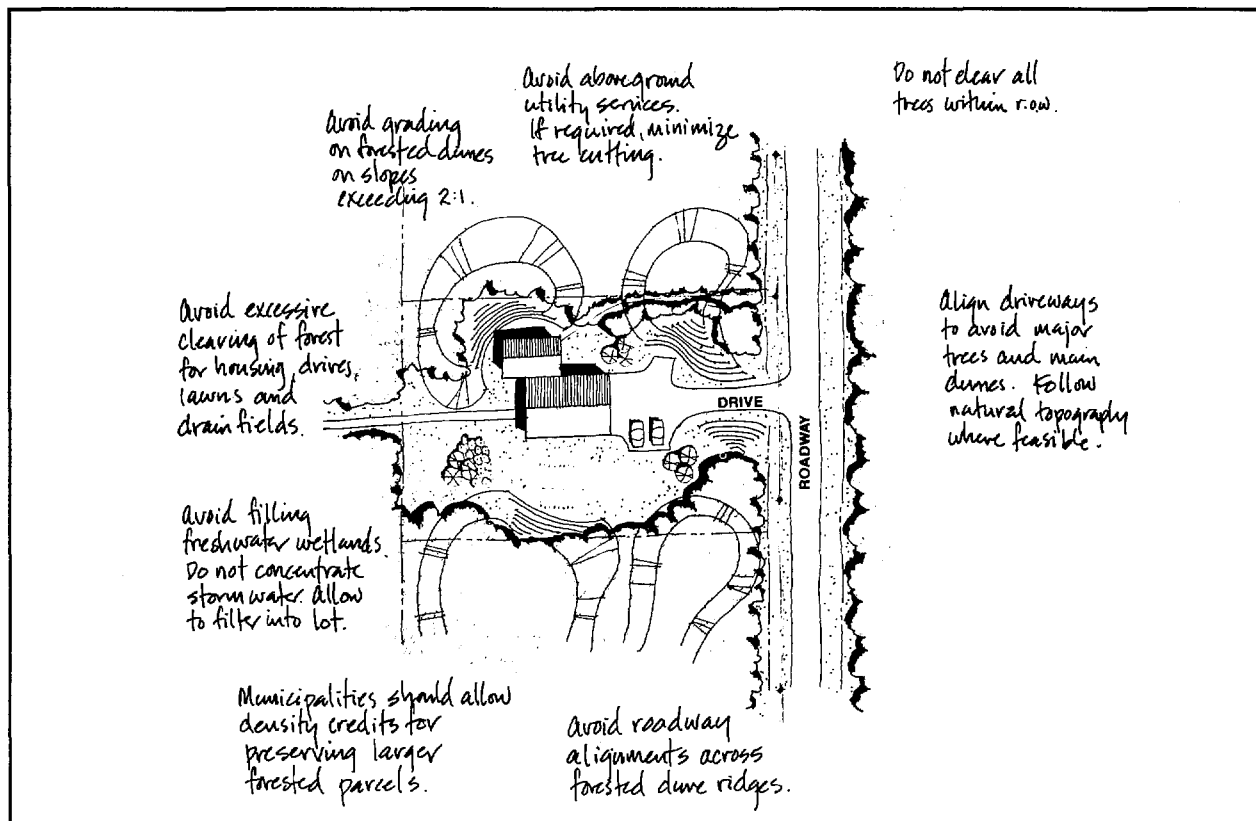 Avoid aboveground
utility services.
If required, minimize
tree cutting.
Do not clear all
trees within r.o.w.
Avoid grading
on forested dunes
on slopes
exceeding 2:1.
Avoid excessive
clearing of forest
for housing, drives,
lawns and
drainfields.
Align driveways
to avoid major
trees and main
dunes. Follow
natural topography
where feasible.
DRIVE
ROADWAY
Avoid filling
freshwater wetlands.
Do not concentrate
stormwater. Allow
to filter into lot.
Municipalities should allow
density credits for
preserving larger
forested parcels.
Avoid roadway
alignments across
forested dune ridges.